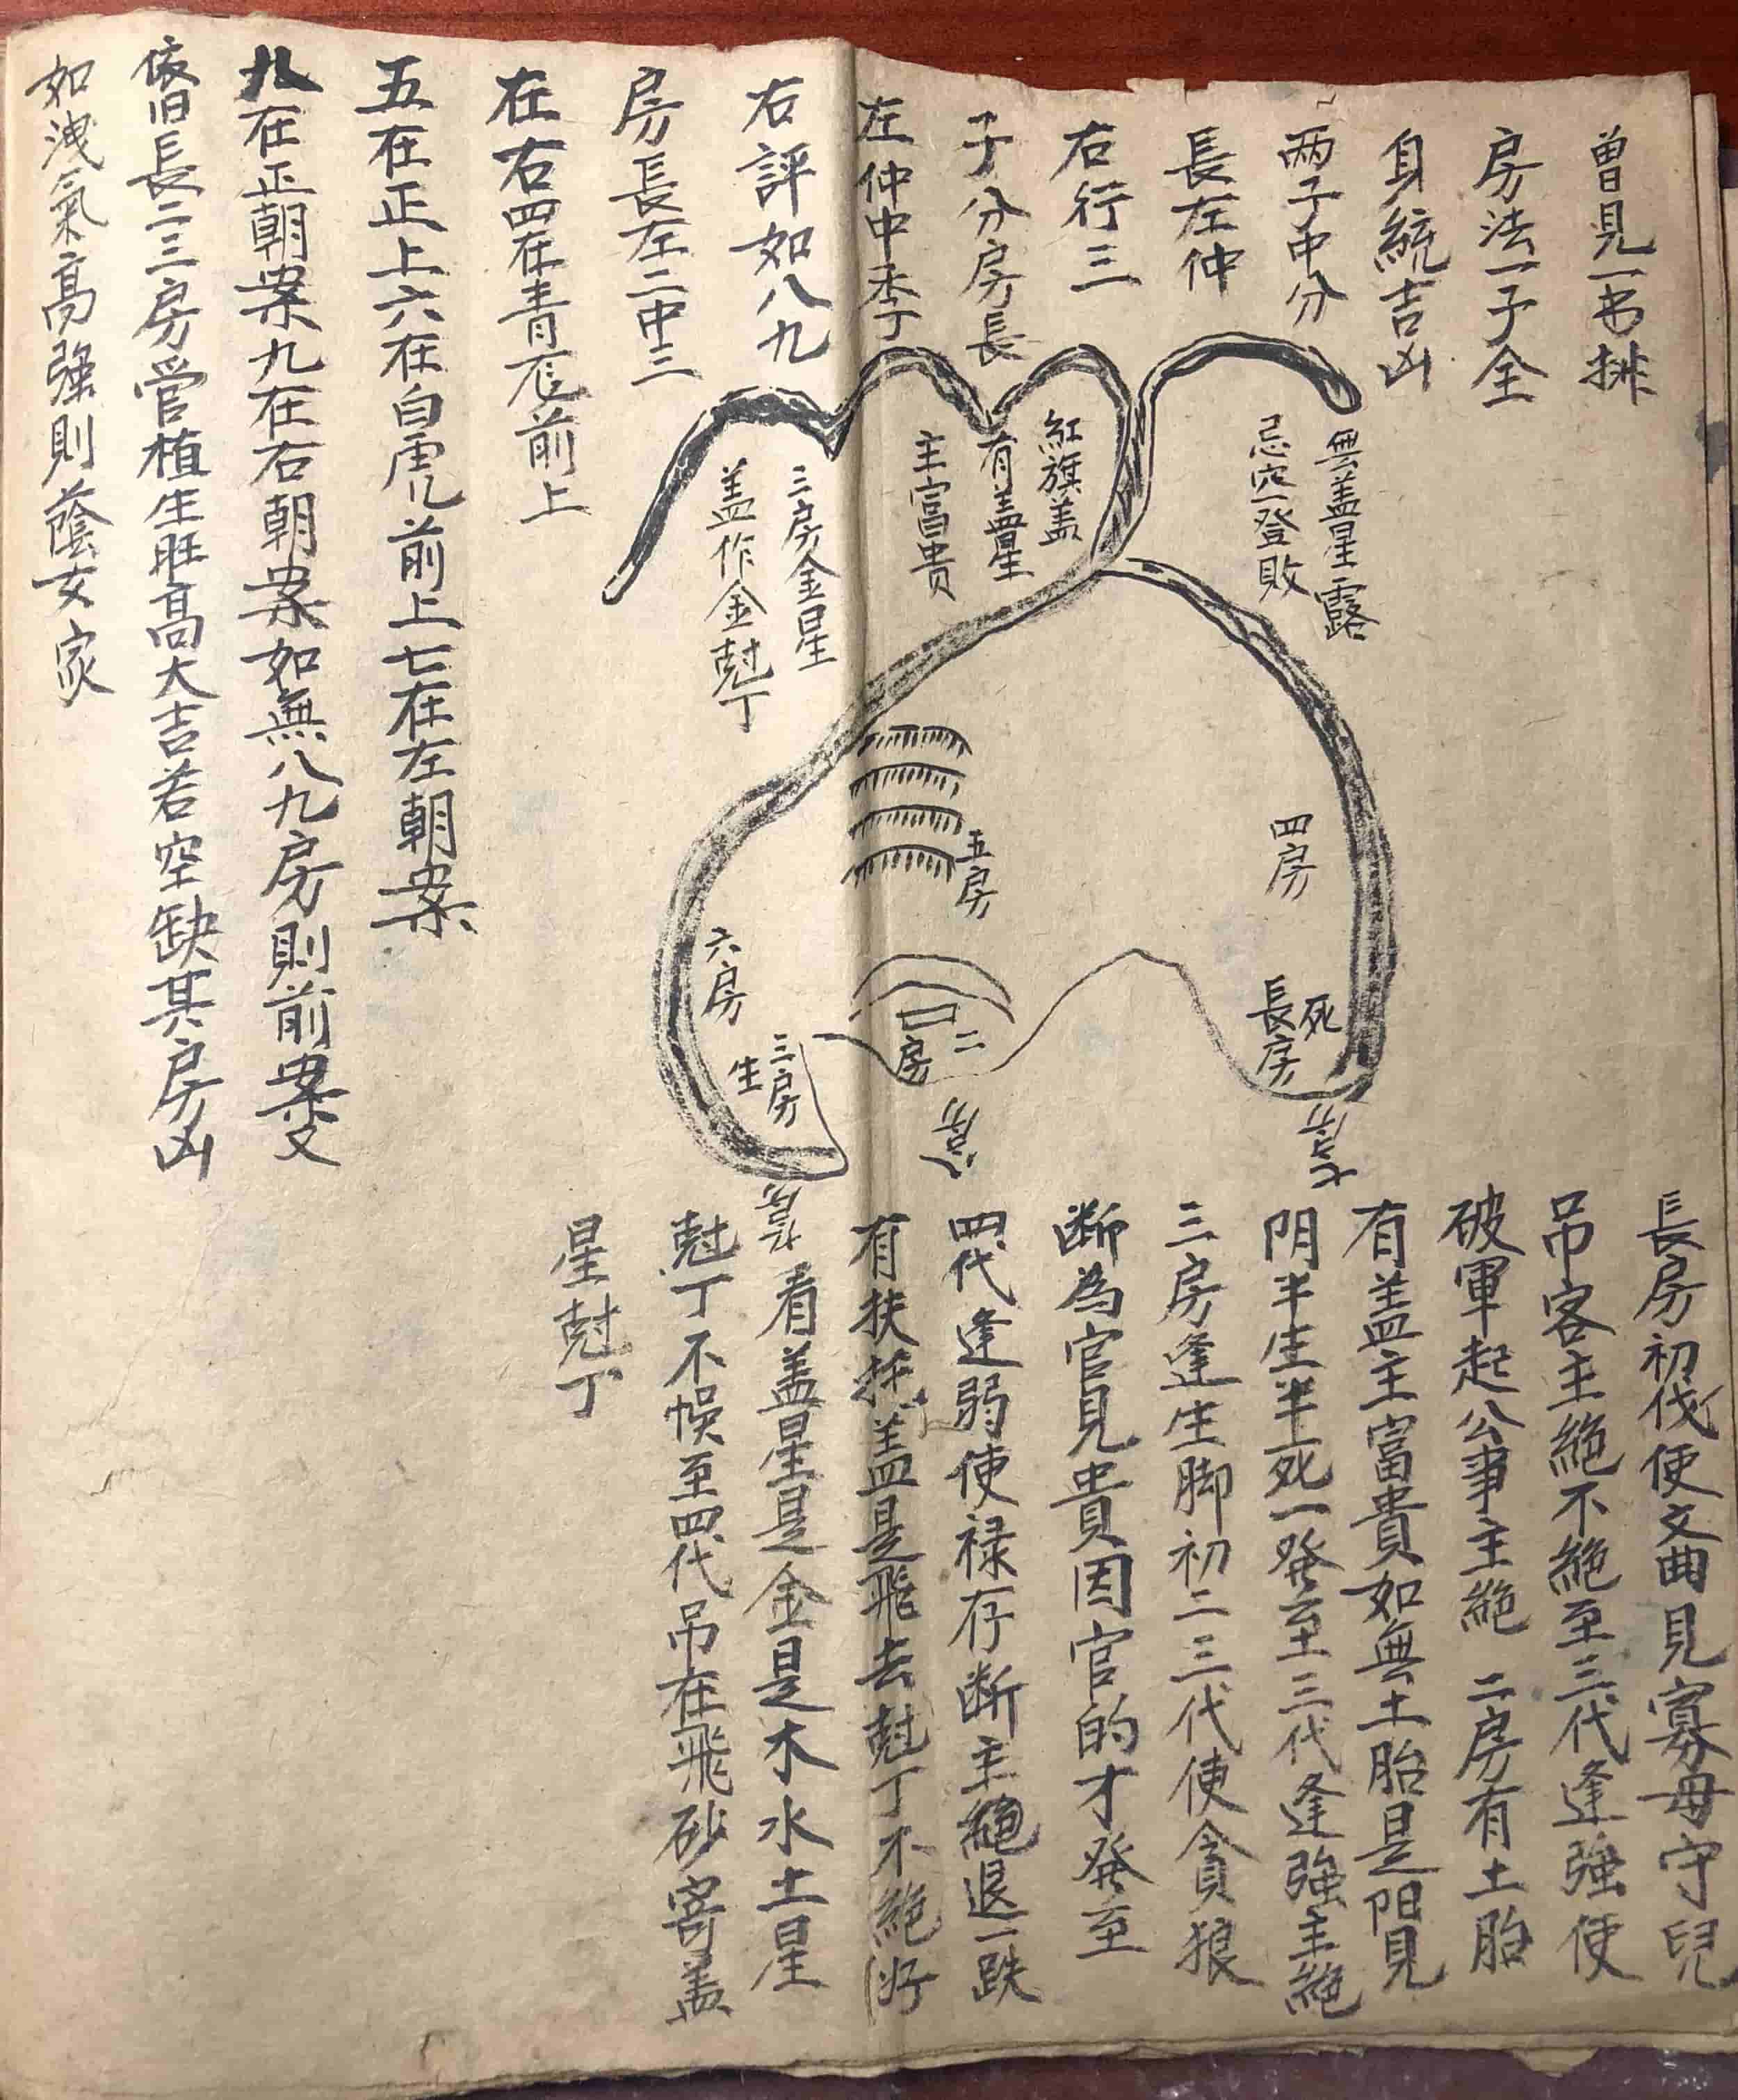 曽見一书排
房法一子全
身統吉凶
两子中分
長左仲
右行三
子分房長
左仲中季
右評如八九
房長左二中三
在右四在青龙前上
五在正上六在白虎前上七在左朝案
八在正朝案九在右朝案如無八九房則前案又
依旧長二三房管植生旺高大吉若空缺其房凶
如洩氣高強則蔭女家
無盖星露
忌穴一登敗
紅旗盖
有盖星
主富貴
三房金星
盖作金尅丁
四房
五房
六房
死
長房
二
房
三房
生
長房初代使文曲見寡母守兒
吊客主絕不絕至三代逢強使
破軍起公事主絕 二房有土胎
有盖主富貴如無土胎是阳見
阴半生半死一発至三代逢強主絕
三房逢生脚初二三代使貪狼
断為官見貴因官的才発至
四代逢弱使禄存断主絕退一跌
有扶 盖是飛去尅丁不絕
看盖星是金是木水土星
尅丁不悞至四代吊在飛砂寄盖
星尅丁